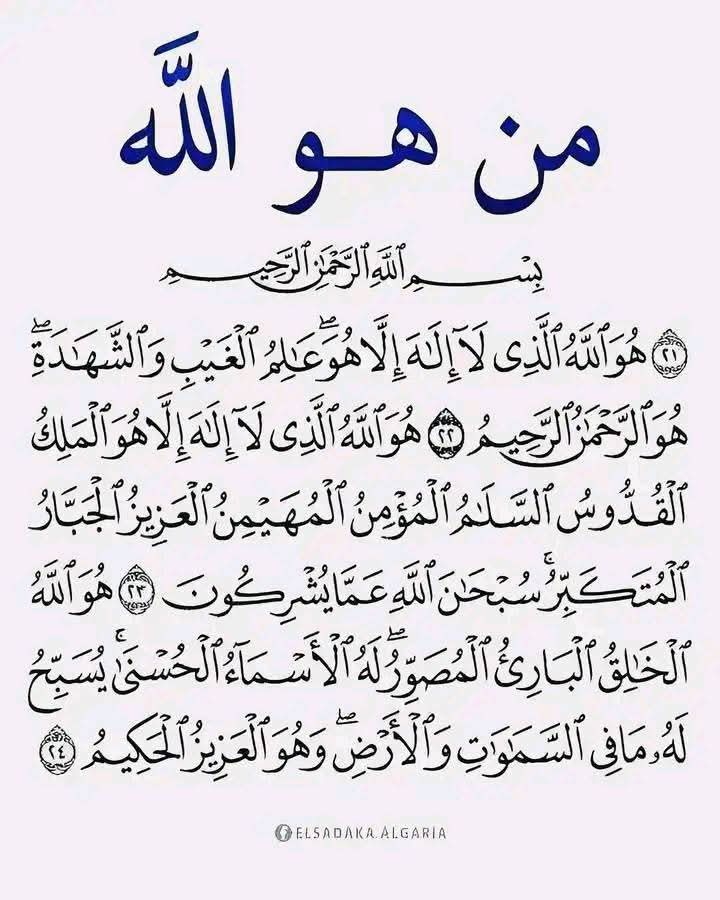 من هو الله
بِسْمِ ٱللَّهِ ٱلرَّحْمَٰنِ ٱلرَّحِيمِ
٢١ هُوَ ٱللَّهُ ٱلَّذِى لَآ إِلَٰهَ إِلَّا هُوَۖ عَٰلِمُ ٱلْغَيْبِ وَٱلشَّهَٰدَةِۖ
هُوَ ٱلرَّحْمَٰنُ ٱلرَّحِيمُ ٢٢ هُوَ ٱللَّهُ ٱلَّذِى لَآ إِلَٰهَ إِلَّا هُوَ ٱلْمَلِكُ
ٱلْقُدُّوسُ ٱلسَّلَٰمُ ٱلْمُؤْمِنُ ٱلْمُهَيْمِنُ ٱلْعَزِيزُ ٱلْجَبَّارُ
ٱلْمُتَكَبِّرُۚ سُبْحَٰنَ ٱللَّهِ عَمَّا يُشْرِكُونَ ٢٣ هُوَ ٱللَّهُ
ٱلْخَٰلِقُ ٱلْبَارِئُ ٱلْمُصَوِّرُۖ لَهُ ٱلْأَسْمَآءُ ٱلْحُسْنَىٰۚ يُسَبِّحُ
لَهُۥ مَا فِى ٱلسَّمَٰوَٰتِ وَٱلْأَرْضِۖ وَهُوَ ٱلْعَزِيزُ ٱلْحَكِيمُ ٢٤
ELSADAKA.ALGARIA